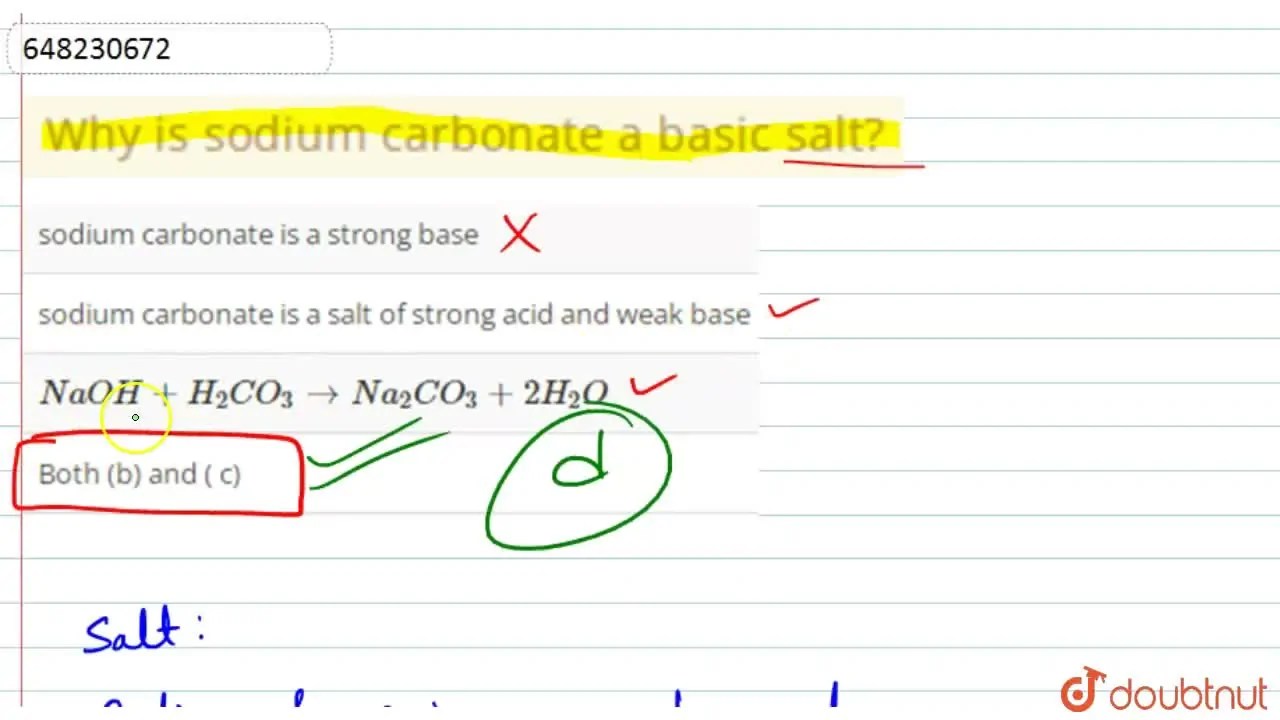 648230672
Why is sodium carbonate a basic salt?
sodium carbonate is a strong base X
sodium carbonate is a salt of strong acid and weak base ✓
NaOH + H₂CO₃ → Na₂CO₃ + 2H₂O ✓
Both (b) and ( c)
d
Salt :
doubtnut